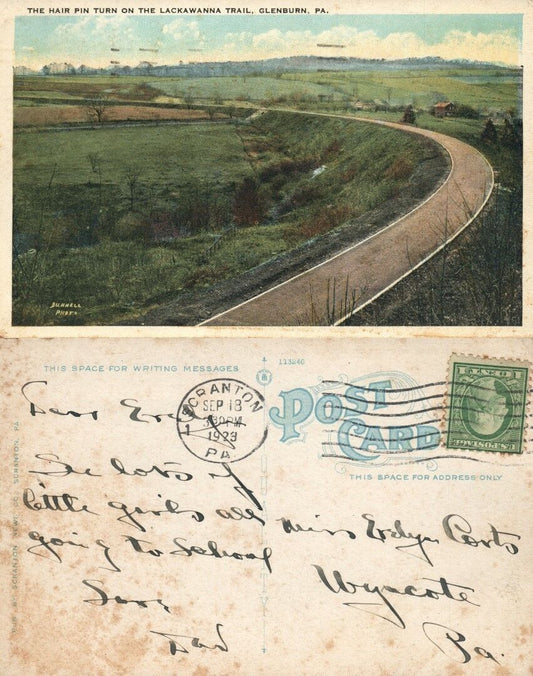 THE HAIR PIN TURN ON THE LACKAWANNA TRAIL, GLENBURN, PA.
BUNNELL
PHOTO
THIS SPACE FOR WRITING MESSAGES
113240
POST
CARD
THIS SPACE FOR ADDRESS ONLY
SCRANTON
SEP 18
330PM
1923
PA.
1
U.S. POSTAGE
SCRANTON, PA.
Dear
See lots of
little girls all
going to School
Dad
Miss Evelyn
Wyncote
Pa.